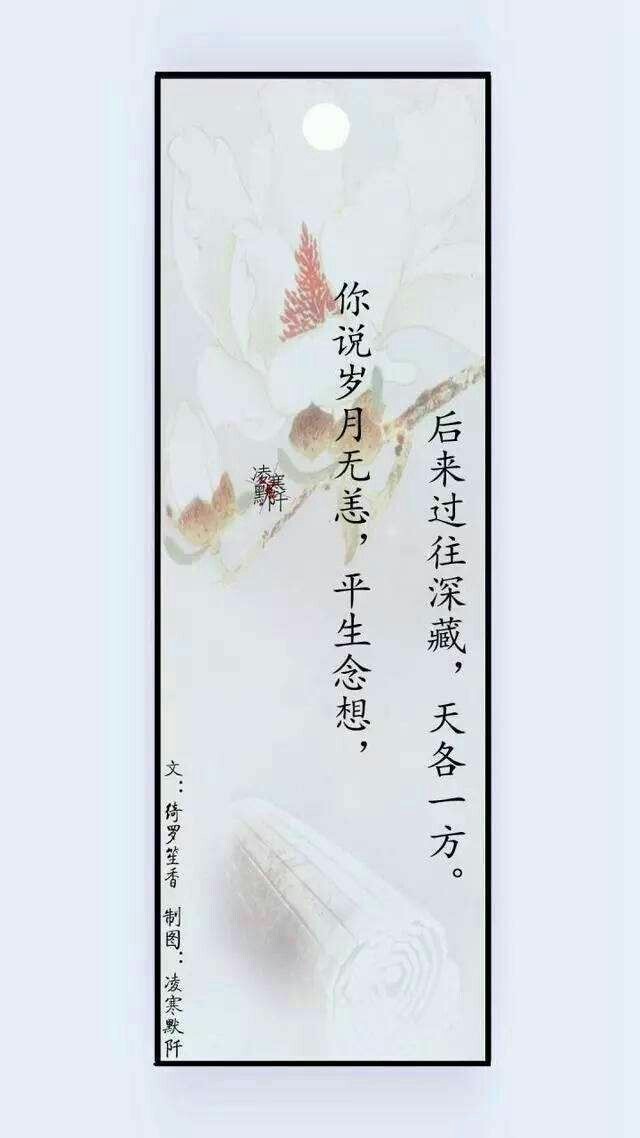 你说岁月无恙，平生念想，
后来过往深藏，天各一方。
凌寒
默阡
文：绮罗笙香 制图：凌寒默阡